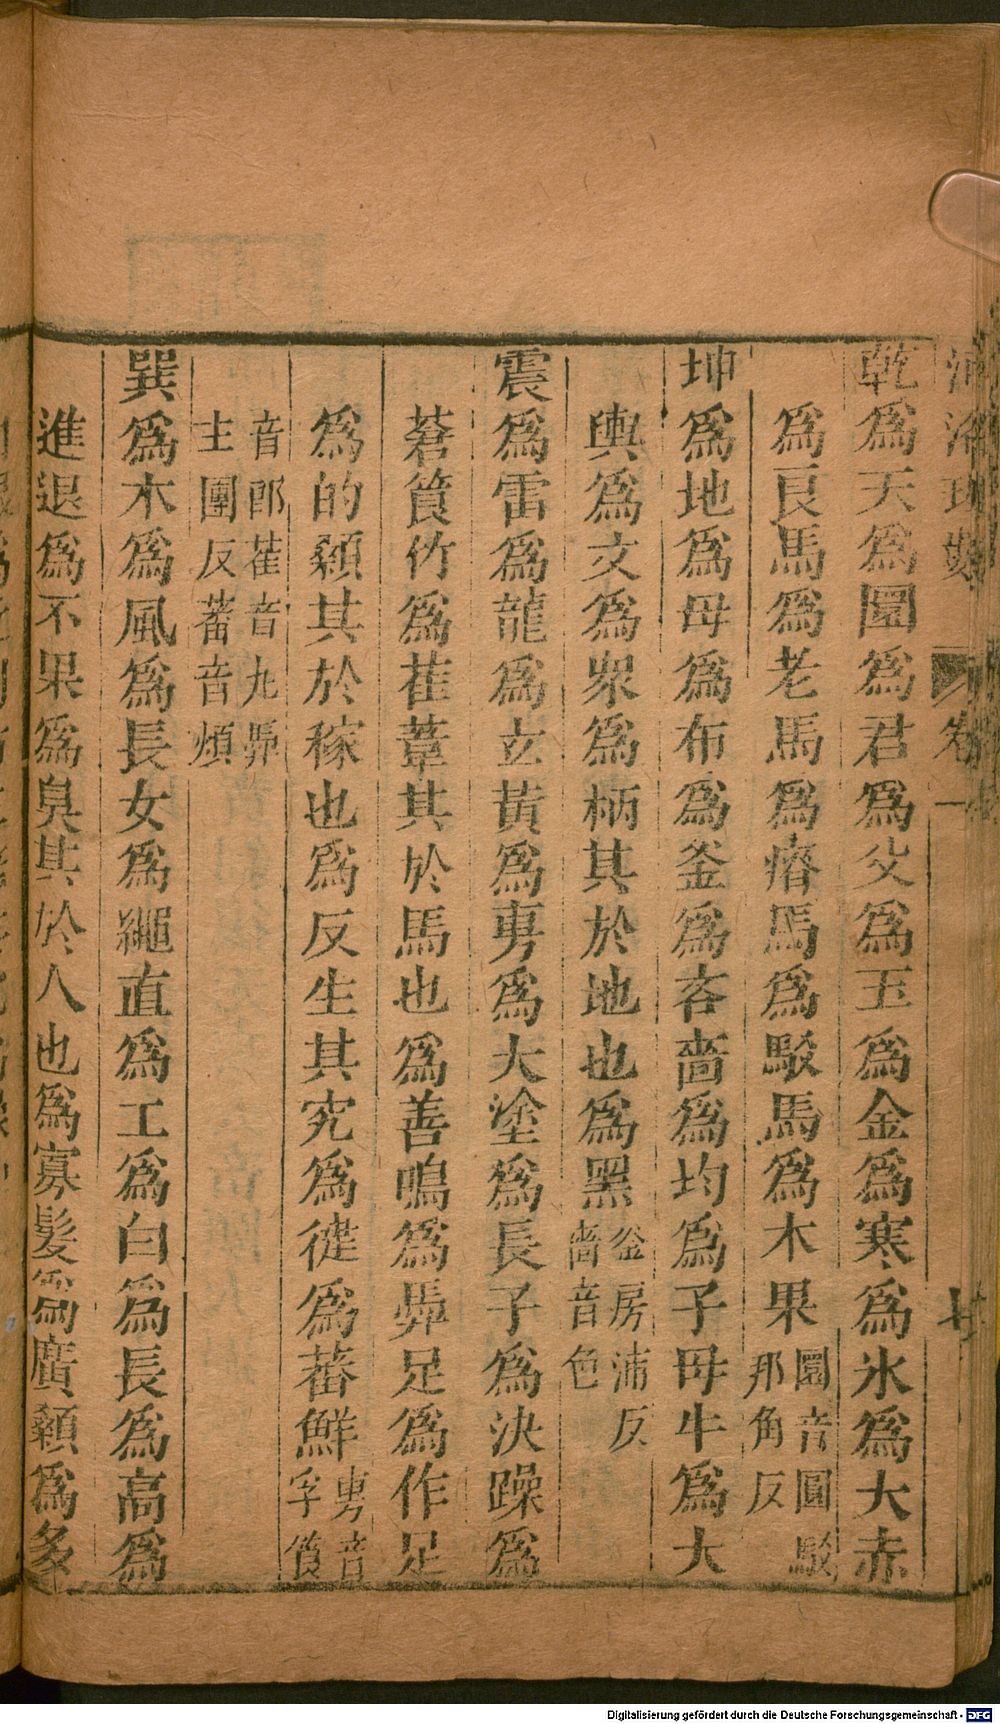 河洛理數 卷一 七
乾爲天爲圜爲君爲父爲玉爲金爲寒爲氷爲大赤
爲良馬爲老馬爲瘠馬爲駁馬爲木果圜音圓駁
那角反
坤爲地爲母爲布爲釜爲吝嗇爲均爲子母牛爲大
輿爲文爲眾爲柄其於地也爲黑釜房浦反
嗇音色
震爲雷爲龍爲玄黃爲旉爲大塗爲長子爲決躁爲
蒼筤竹爲萑葦其於馬也爲善鳴爲馵足爲作足
爲的顙其於稼也爲反生其究爲健爲蕃鮮旉音
孚筤
音郎萑音九馵
主圑反蕃音煩
巽爲木爲風爲長女爲繩直爲工爲白爲長爲高爲
進退爲不果爲臭其於人也爲寡髮爲廣顙爲多
Digitalisierung gefördert durch die Deutsche Forschungsgemeinschaft - DFG